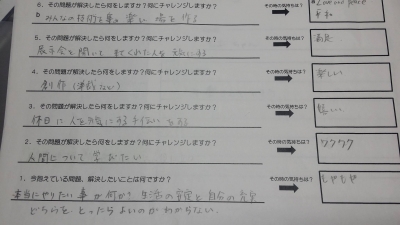 6. その問題が解決したら何をしますか？何にチャレンジしますか？
その時の気持ちは？
みんなの技術で 楽しい 場を作る
平和
5. その問題が解決したら何をしますか？何にチャレンジしますか？
その時の気持ちは？
展示会を開いて きてくれた人を元気にする
満足
4. その問題が解決したら何をしますか？何にチャレンジしますか？
その時の気持ちは？
創作
楽しい
3. その問題が解決したら何をしますか？何にチャレンジしますか？
その時の気持ちは？
休日に 人を元気にする をする
2. その問題が解決したら何をしますか？何にチャレンジしますか？
その時の気持ちは？
人間について 学びたい
ワクワク
1. 今抱えている問題、解決したいことは何ですか？
その時の気持ちは？
本当にやりたい事が何か？生活の安定と自分の充実
もやもや
どちらをとったらよいのかわからない。